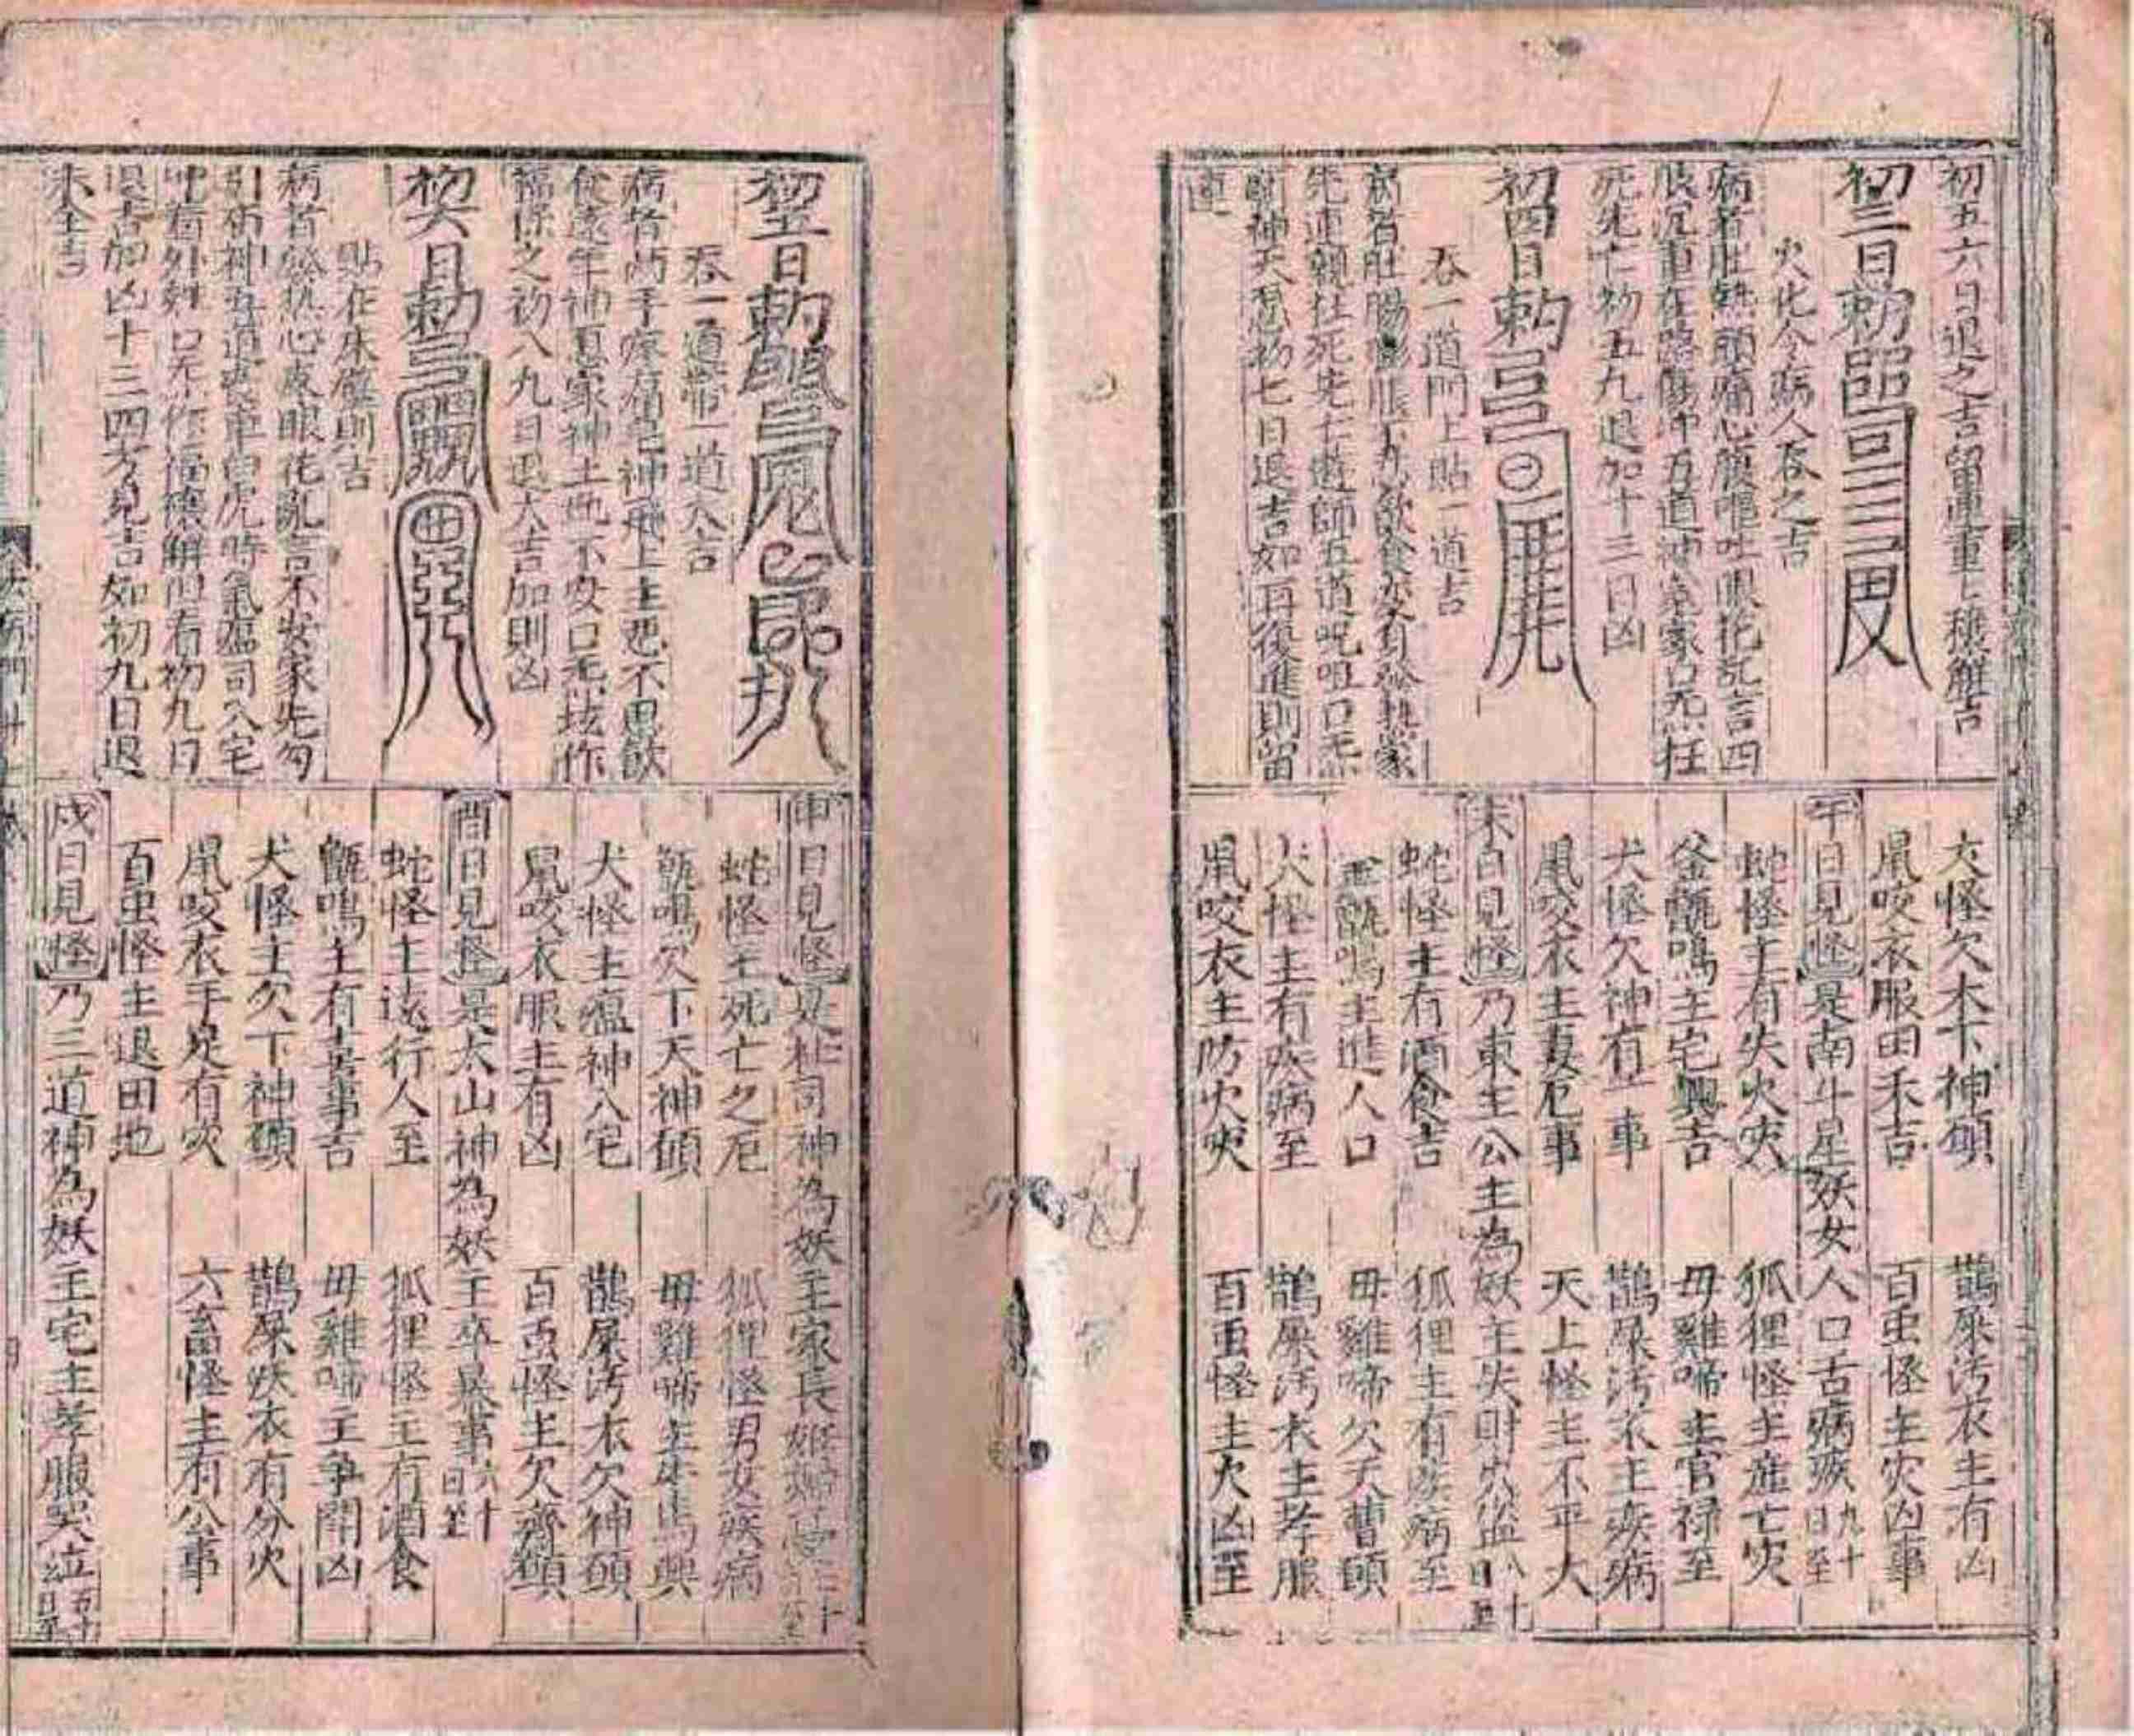 初五六日退之吉留連重上禳觧吉
初三日勅
火化令病人吞之吉
病者肚熱頭痛心腹嘔吐眼花乱言四
肢沉重在路傷冲五道神家口无狂
死先亡初五九退加十三日凶
初四日勅
吞一道門上貼一道吉
病者肚腸膨脹下九飲食不安身發熱家
先連親狂死先亡遊師五道呪咀口无
司神天忌初七日退吉如再復進則留
連
犬怪欠木下神願
鼠咬衣服田禾吉
午日見怪是南斗星妖女人口舌病疾九十日至
蛇怪主有失火灾
釜甑鳴主宅興吉
犬怪欠神有一事
鼠咬衣主妻厄事
未日見怪乃東主公主為妖主失財火盗八十日至
蛇怪主有酒食吉
釜甑鳴主進人口
犬怪主有疾病至
鼠咬衣主防火灾
鵲屎污衣主有凶
百虫怪主灾凶事
狐狸怪主産亡灾
母雞啼主官禄至
鵲屎污衣主疾病
天上怪主不平大
狐狸主有疾病至
母雞啼欠天曹願
鵲屎污衣主孝服
百虫怪主大凶至
初五日勅
吞一道帶一道大吉
病者两手疼痛乞神飛上主悪不思飲
食遠年神愿家神土地不安口无咳作
福保之初八九日退大吉加則凶
初六日勅
貼在床薦則吉
病者發热心哀眼花乱言不安家先勾
引傷神五道喪車白虎時氣瘟司入宅
退吉加凶十三四方見吉如初九日退
未全吉
申日見怪是社司神為妖主家長
蛇怪主死亡之厄
甑鳴欠下天神願
犬怪主瘟神入宅
鼠咬衣服主有凶
酉日見怪是太山神為妖主卒暴事六十日至
蛇怪主遠行人至
甑鳴主有喜事吉
犬怪主欠下神願
鼠咬衣手足有灾
百虫怪主退田地
戌日見怪乃三道神為妖主宅主孝服哭泣五十日至
狐狸怪男女疾病
母雞啼主牛馬興
鵲屎污衣欠神願
百虫怪主欠齋願
狐狸怪主有酒食
母雞啼主争鬧凶
鵲屎污衣有分火
六畜怪主有公事